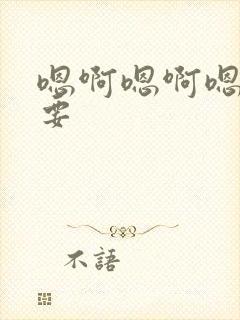 嗯啊嗯啊嗯
要
不語